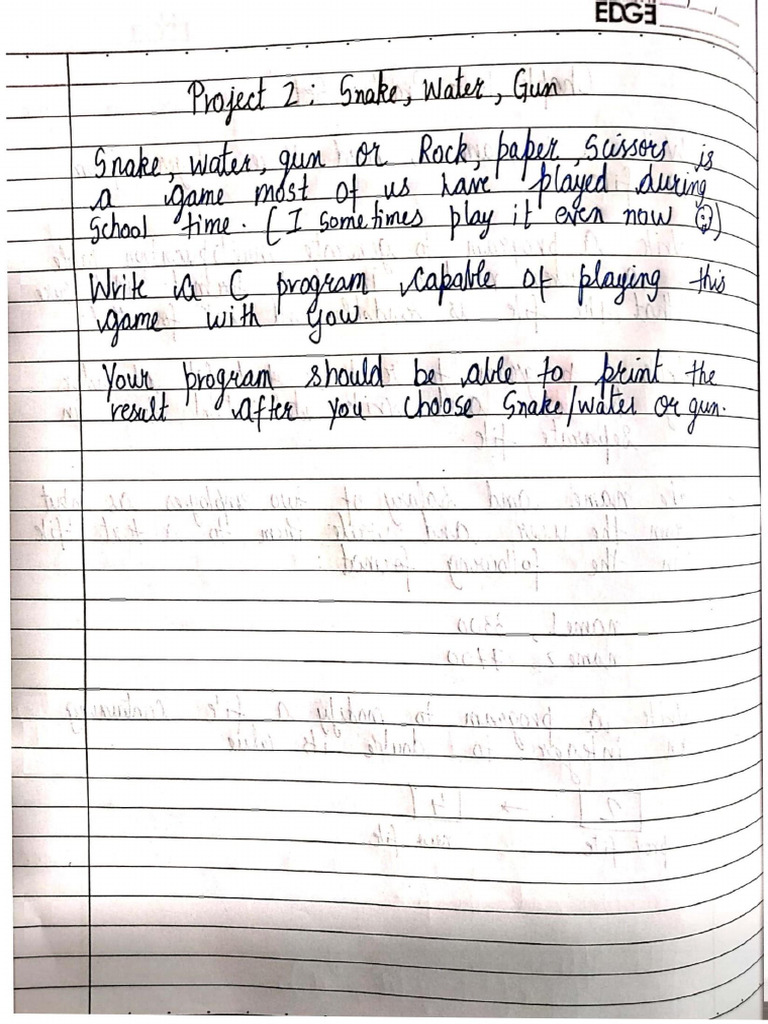 EDGE
Project 2: Snake, Water, Gun
Snake, water, gun or Rock, paper, scissors is
a game most of us have played during
School time. (I sometimes play it even now ☺)
Write a C program capable of playing this
game with you.
Your program should be able to print the
result after you choose Snake/water or gun.